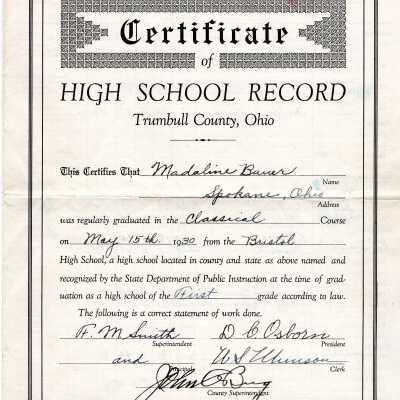 Certificate
of
HIGH SCHOOL RECORD
Trumbull County, Ohio
This Certifies That Madaline Bauer
Name
Spokane, Ohio
Address
was regularly graduated in the Classical Course
on May 15th 1930 from the Bristol
High School, a high school located in county and state as above named and
recognized by the State Department of Public Instruction at the time of grad-
uation as a high school of the First grade according to law.
The following is a correct statement of work done.
F. M. Smith D C Osborn
Superintendent President
and W S Munson
Principal Clerk
John
County Superintendent